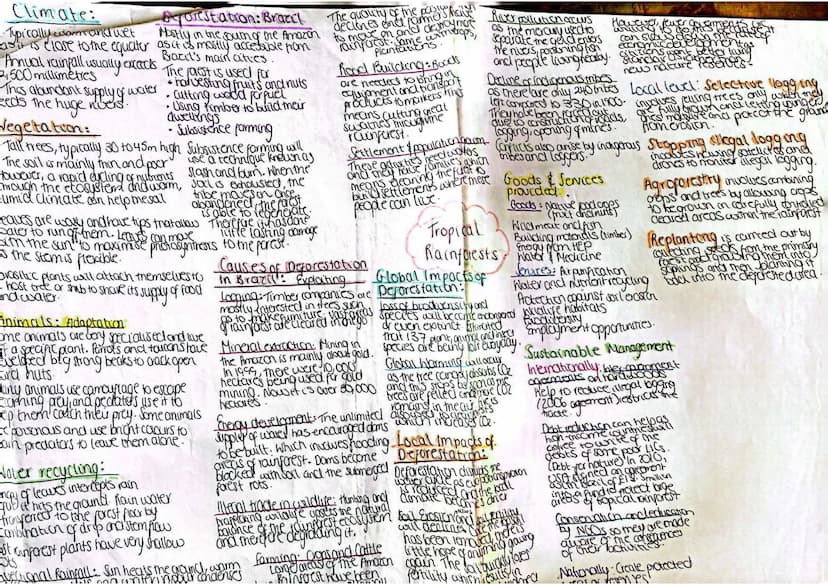 Climate:
Typically warm and wet
as it is close to the equator
Annual rainfall usually exceeds
2,500 millimetres
This abundant supply of water
feeds the huge rivers.
Vegetation:
Tall trees, typically 30 to 45m high
The soil is mainly thin and poor
However, a rapid cycling of nutrients
through the ecosystem and warm,
humid climate can help
Leaves are waxy and have tips that allow
water to run off them. Leaves can move
with the sun to maximise photosynthesis
as the stem is flexible.
Parasitic plants will attach themselves to
host tree or shrub to share its supply of food
and water.
Animals: Adaptation
Some animals are very specialised and have
a specific plant. Parrots and toucans have
developed big strong beaks to crack open
hard nuts
Many animals use camouflage to escape
prey and predators use it to
help them catch their prey. Some animals
are poisonous and use bright colours to
warn predators to leave them alone.
Water recycling:
of leaves intercepts rain
hits the ground. Rain water
transferred to the forest floor by
combination of drip and stem flow
rainforest plants have very shallow
roots
Convectional Rainfall: Sun heats the ground, warm
Deforestation: Brazil
Mostly in the south of the Amazon
as it is mostly accessible from
Brazil's main cities.
The forest is used for
• harvesting fruits and nuts
• Cutting wood for fuel
• Using timber to build their
dwellings
• Subsistence farming
Subsistence farming will
use a technique known as
slash and burn. When the
soil is exhausted, the
tribe moves on and
abandoned the forest
is able to regenerate.
Therefore it has done
little lasting damage
to the forest.
Causes of Deforestation
in Brazil: Exploiting
Logging: Timber companies are
mostly interested in trees such
go to make furniture. Vast areas
of rainforest are cleared in one go
Mineral extraction: Mining in
the Amazon is mainly about gold.
In 1999, there were 10,000
hectares being used for gold
mining. Now it is over 50,000
hectares.
Energy development: The unlimited
supply of water has encouraged dams
to be built. Which involves flooding
areas of rainforest. Dams become
blocked with soil and the submerged
forest rots.
Illegal trade in wildlife: Hunting and
trafficking wildlife upsets the natural
balance of the rainforest ecosystem
and therefore degrading it.
Farming: Crops and Cattle
Large areas of the Amazon
rainforest have been
The quality of the pasture
declines and farmers have
to move on and destroy more
rainforest
plantations.
Road Building: Roads
are needed to bring in
equipment and transport
products to markets. This
means cutting great
swathes through the
rainforest.
Settlement & population growth
These activities need workers
and they have families which
means clearing the forest to
build settlements where more
people can live.
Tropical
Rainforests
Global Impacts of
Deforestation:
Loss of biodiversity and
species will become endangered
or even extinct. Estimated
that 137 plant, animal and insect
species are being lost everyday.
Global Warming: will occur
as the tree canopy absorbs CO2
and this stops by trees as
trees are felled and more CO2
remains in the air. It is
also used in burning
which increases CO2
Local Impacts of
Deforestation:
Deforestation disrupts the
water cycle as evapotranspiration
is reduced and the local
climate becomes drier
Soil Erosion and fertility
will decrease. When
has been removed there is
little hope of anything growing
again. The land loses any
fertility which
River pollution occurs
as the mercury used to
separate the gold enters
the rivers, poisoning fish
and people living nearby.
Decline of indigenous tribes
as there are only 240 tribes
left compared to 330 in 1900.
They have been forced away
due to construction of roads,
logging, opening of mines.
Conflicts also arise by indigenous
tribes and loggers.
Goods & Services
provided:
Goods: Native food crops
(fruit and nuts)
Wild meat and fish
Building materials (timber)
Energy from HEP
Water & Medicine
Services: Air purification
Water and nutrient recycling
Protection against soil erosion
Wildlife habitats
Biodiversity
Employment opportunities.
Sustainable Management
Internationally:
agreements on hardwoods
Help to reduce illegal logging
(2006 agreement) restricts the
trade.
Debt reduction can help as
high income
agree to write off the
debts of some poor LICs.
(Debt-for-nature). In 2010,
USA signed an agreement
with Brazil of $13.5 million
in a fund to protect large
areas of tropical rainforest
Conservation and education
by NGOs so they are made
aware of the consequences
of their activities.
Nationally: Create protected
However, fewer governments
economic development
Local level: Selective logging
involves felling trees only when they
are fully grown and letting younger
trees mature and protect the ground
from erosion.
Stopping illegal logging
involves
areas to detect illegal logging.
Agroforestry involves combining
crops and trees by allowing crops
to be grown in carefully controlled
cleared areas within the rainforest
Replanting is carried out by
collecting seeds from the primary
forest and growing them into
saplings and then planting it
back into the deforested area.